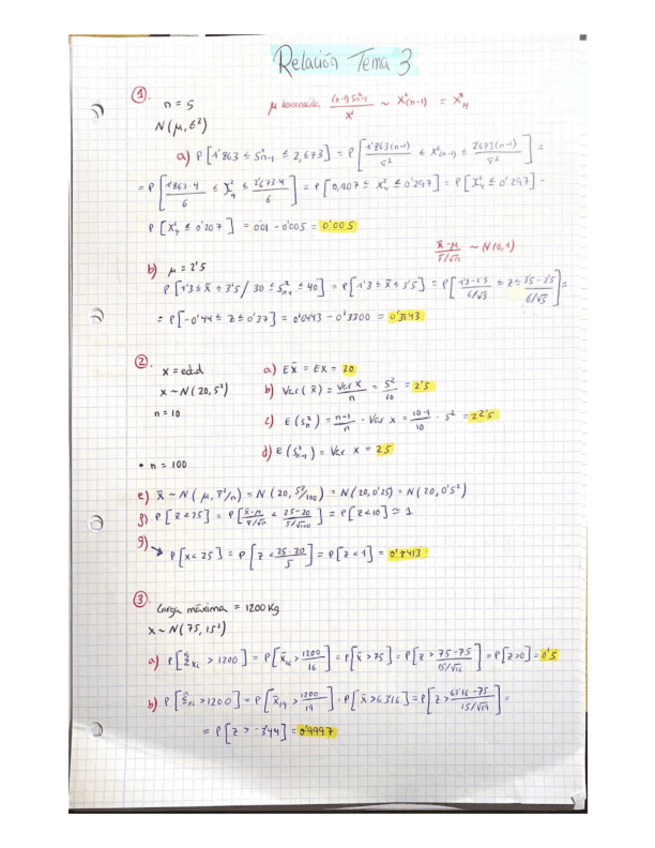 Relación Tema 3
①. n = 5
N(μ, 6²)
μ desconocida (n-1)Sn²-1 / X² ~ X²(n-1) = X²4
a) P[1'863 ≤ S²n-1 ≤ 2,673] = P[1'863(n-1)/5² ≤ X²(n-1) ≤ 2'673(n-1)/5²] =
= P[1'863·4/6 ≤ X²4 ≤ 2'673·4/6] = P[0,207 ≤ X²4 ≤ 0'297] = P[X²4 ≤ 0'297] -
P[X²4 ≤ 0'207] = 0'01 - 0'005 = 0'005
x̄-μ / σ/√n ~ N(0,1)
b) μ = 2'5
P[1'3 ≤ x̄ ≤ 3'5 / 30 ≤ S²n-1 ≤ 40] = P[1'3 ≤ x̄ ≤ 3'5] =
= P[-0'44 ≤ Z ≤ 0'37] = 0'6443 - 0'3300 = 0'3143
②. x = edad
x ~ N(20, 5²)
n = 10
a) E x̄ = E x = 20
b) Var(x̄) = Var x / n = 5²/10 = 2'5
c) E(S²n) = n-1/n · Var x = 10-1/10 · 5² = 22'5
d) E(S²n-1) = Var x = 25
• n = 100
e) x̄ ~ N(μ, σ²/n) = N(20, 5²/100) = N(20, 0'25) = N(20, 0'5²)
f) P[x̄ < 25] = P[x̄-μ / σ/√n < 25-20 / 5/√100] = P[Z < 10] ≃ 1
g) → P[x < 25] = P[Z < 25-20 / 5] = P[Z < 1] = 0'8413
③. Carga máxima = 1200 Kg
x ~ N(75, 15²)
a) P[Σxi > 1200] = P[x̄16 > 1200/16] = P[x̄ > 75] = P[Z > 75-75 / 15/√16] = P[Z > 0] = 0'5
b) P[Σxi > 1200] = P[x̄19 > 1200/19] = P[x̄ > 63'16] = P[Z > 63'16-75 / 15/√19] =
= P[Z > -3'44] = 0'9997